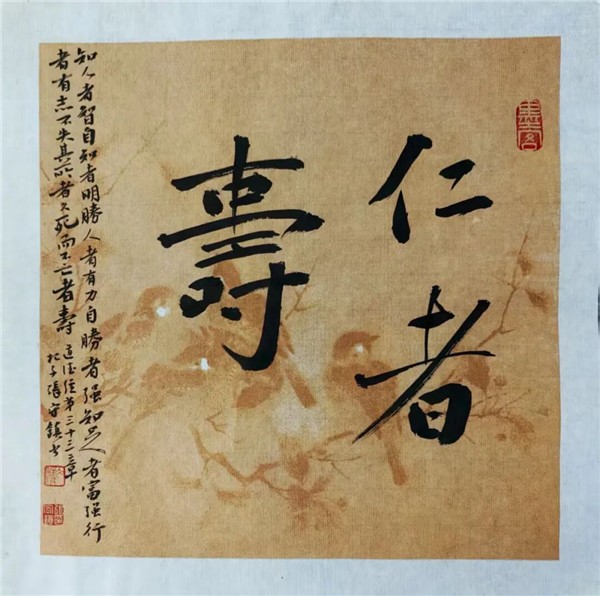 仁者
壽
知人者智自知者明勝人者有力自勝者强知足者富强行
者有志不失其所者久死而不亡者壽
道德经第三十三章
張守鎮书